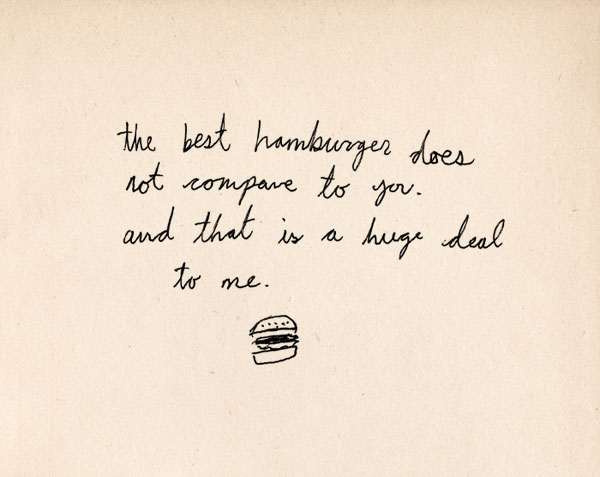 the best hamburger does
not compare to you.
and that is a huge deal
to me.